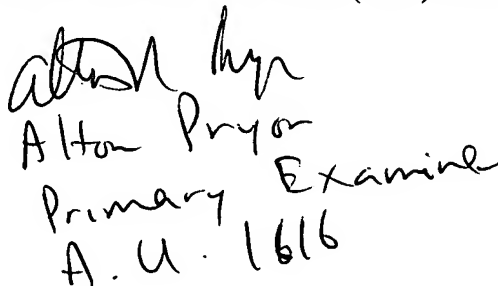 Alton Pryor
Primary Examiner
A. U. 1616